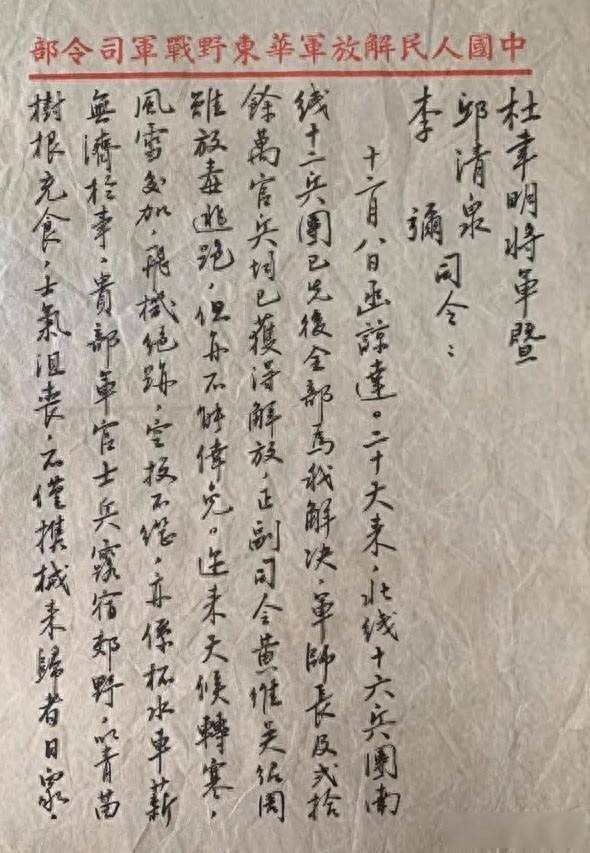 中國人民解放軍華東野戰軍司令部
杜聿明將軍暨
邱清泉
李 彌 司令：
十二月八日函諒達。二十天来，北线十六兵團南
线十二兵團已先後全部為我解决，軍師長及弍拾
餘萬官兵均已獲得解放，正副司令黄維吴绍周
雖放毒逃跑，但亦不能倖免。近来天候轉寒，
風雪交加，飛機絕跡，空投不继，亦係杯水車薪
無濟於事，貴部軍官士兵露宿郊野，以青苗
樹根充食，士氣沮喪，不僅携械来歸者日众，